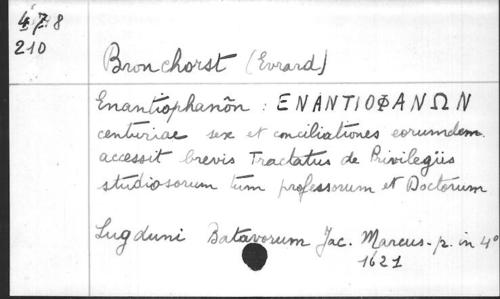 478
210
Bronchorst (Evrard)
Enantiophanôn : ΕΝΑΝΤΙΟΦΑΝΩΝ
centuriae sex et conciliationes eorumdem.
accessit brevis Tractatus de Privilegiis
studiosorum tum professorum et Doctorum
Lugduni Batavorum Jac. Marcus - p. in 4°
1621